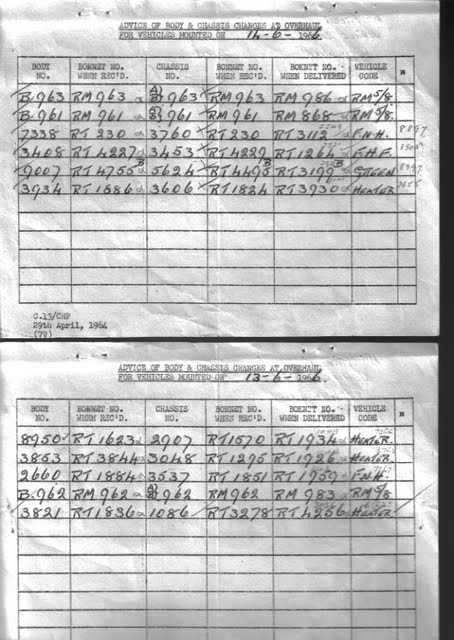 ADVICE OF BODY & CHASSIS CHANGES AT OVERHAUL
FOR VEHICLES MOUNTED ON 14-6-1966
BODY NO. BONNET NO. WHEN REC'D. CHASSIS NO. BONNET NO. WHEN REC'D. BONNET NO. WHEN DELIVERED VEHICLE CODE
B.963 RM 963 A) B) 963 RM 963 RM 986 RM 5/8
B.961 RM 961 961 RM 961 RM 868 RM 5/8.
7338 RT 230 3760 RT 230 RT 3112 F.N.H.
3408 RT 4227 3453 RT 4229 RT 1264 F.H.F.
9007 RT 4755 B 5624 RT 4495 B RT 3199 GREEN
3934 RT 1686 3606 RT 1824 RT 3930 HEATER
C.13/CHP
29th April, 1964
(79)
ADVICE OF BODY & CHASSIS CHANGES AT OVERHAUL
FOR VEHICLES MOUNTED ON 13-6-1966
BODY NO. BONNET NO. WHEN REC'D. CHASSIS NO. BONNET NO. WHEN REC'D. BONNET NO. WHEN DELIVERED VEHICLE CODE
8950 RT 1623 2907 RT 1570 RT 1934 HEATER.
3853 RT 3844 3048 RT 1295 RT 1926 HEATER
2660 RT 1884 3537 RT 1851 RT 1959 F.N.H
B.962 RM 962 A) 962 RM 962 RM 983 RM 5/8
3821 RT 1836 1086 RT 3278 RT 4256 HEATER